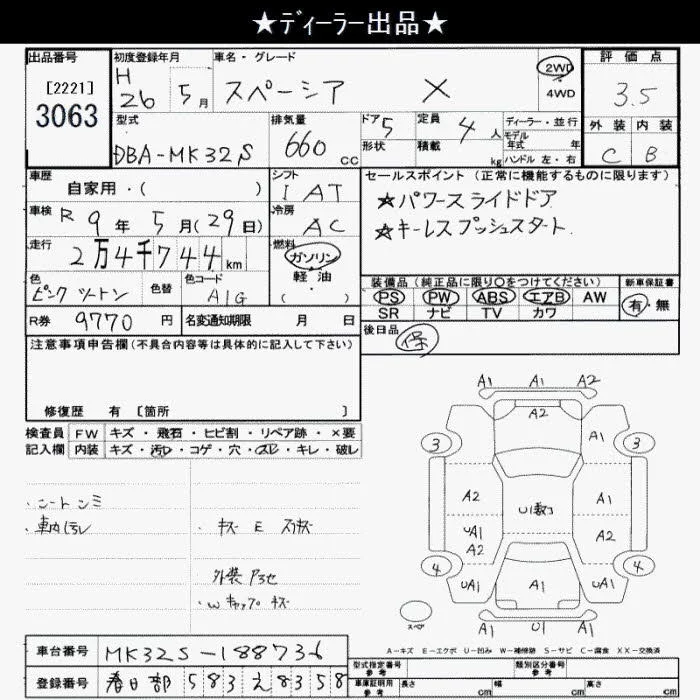 ★ディーラー出品★
出品番号
[2221]
3063
初度登録年月
H
26 5 月
車名・グレード
スペーシア X
2WD
4WD
評価点
3.5
外装 内装
C B
型式
DBA-MK32S
排気量
660 CC
ドア 5
形状
定員 4 人
積載 kg
ディーラー・並行
モデル
年式 年
ハンドル 左・右
車歴
自家用・( )
シフト
I AT
車検 R 9 年 5 月(29日)
冷房
AC
走行
2万4千744 km
燃料
ガソリン
軽・油
( )
色
ピンク ツートン
色替
色コード
A1G
R券 9770 円
名変通知期限 月 日
セールスポイント(正常に機能するものに限ります)
☆パワースライドドア
☆キーレスプッシュスタート
装備品(純正品に限り○をつけてください)
PS PW ABS エアB AW
SR ナビ TV カワ
新車保証書
有・無
後日品
保
注意事項申告欄(不具合内容等は具体的に記入して下さい)
修復歴 有 [箇所 ]
検査員 FW キズ・飛石・ヒビ割・リペア跡・×要
記入欄 内装 キズ・汚レ・コゲ・穴・スレ・キレ・破レ
・シートシミ
・車内汚レ
・キズ E スリキズ
・Wキャップ キズ
A1 A1 A2
A2
3 A1 3
A2 U1 A1
UA1 A2
A2
4 4
UA1 A1 UA1
スペア
UA1 U1 A1
A-キズ E-エクボ U-凹み W-補修跡 S-サビ C-腐食 XX-交換済
車台番号 MK32S-188736
登録番号 春日部 583 え 8358
型式指定番号
参考
類別区分番号
参考
車庫証明用
参考
長さ cm 幅 cm 高さ cm